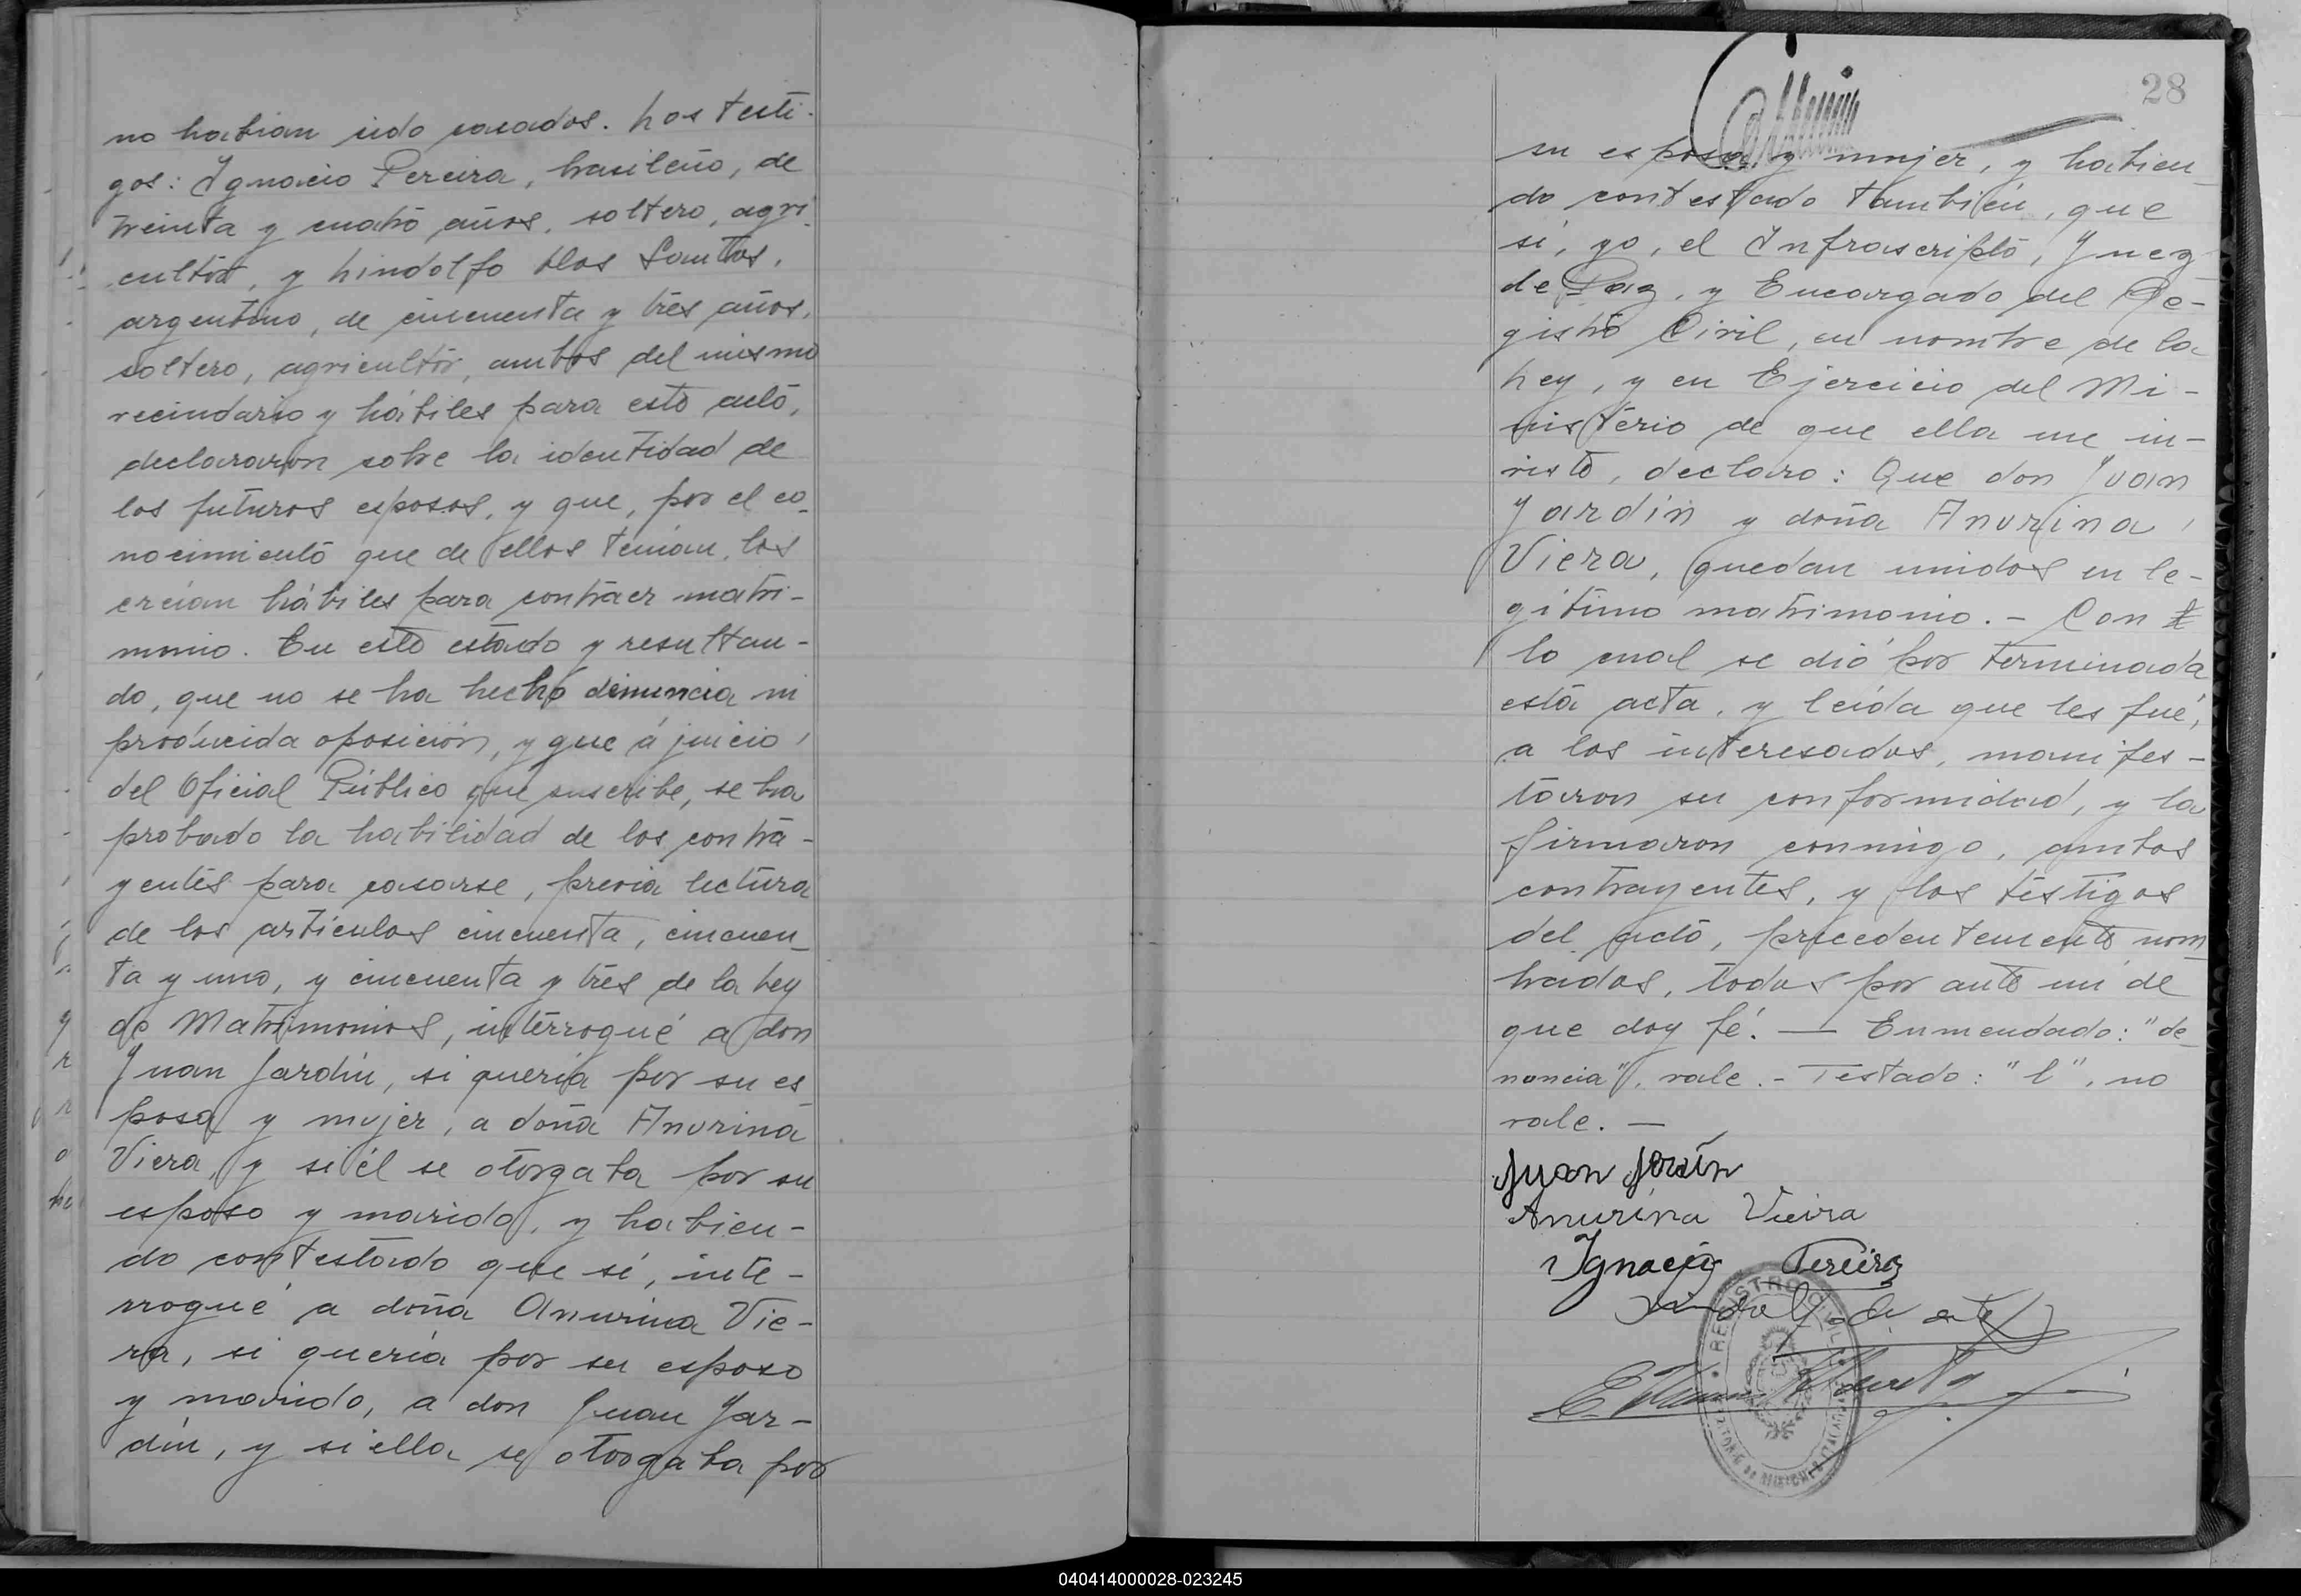 no habian sido casados. Los testi-
gos: Ignacio Pereira, brasileño, de
treinta y cuatro años, soltero, agri-
cultor, y Lindolfo dos Santos,
argentino, de cincuenta y tres años,
soltero, agricultor, ambos del mismo
vecindario y hábiles para este acto,
declararon sobre la identidad de
los futuros esposos, y que, por el co-
nocimiento que de ellos tenían, los
creían hábiles para contraer matri-
monio. En este estado y resultan-
do, que no se ha hecho denuncia ni
producida oposición, y que á juicio
del Oficial Público que suscribe, se ha
probado la habilidad de los contra-
yentes para casarse, previa lectura
de los artículos cincuenta, cincuen-
ta y uno, y cincuenta y tres de la Ley
de Matrimonios, interrogué a don
Juan Jardín, si quería por su es
posa y mujer, a doña Anurina
Viera, y si él se otorgaba por su
esposo y marido, y habien-
do contestado que sí, inte-
rrogué a doña Anurina Vie-
ra, si quería por su esposo
y marido, a don Juan Jar-
dín, y si ella se otorgaba por
28
su esposa y mujer, y habien-
do contestado también, que
sí, yo, el Infrascripto, Juez
de Paz, y Encargado del Re-
gistro Civil, en nombre de la
Ley, y en Ejercicio del Mi-
nisterio de que ella me in-
viste, declaro: Que don Juan
Jardín y doña Anurina
Viera, quedan unidos en le-
gítimo matrimonio. - Con
lo cual se dió por terminada
esta acta, y leída que les fué,
a los interesados, manifes-
taron su conformidad, y la
firmaron conmigo, ambos
contrayentes, y los testigos
del acto, precedentemente nom
brados, todos por ante mi de
que doy fé. — Enmendado: "de
nuncia", vale. - Testado: "l", no
vale. —
Juan Jardín
Anurina Vieira
Ignacio Pereira
REGISTRO CIVIL
040414000028-023245